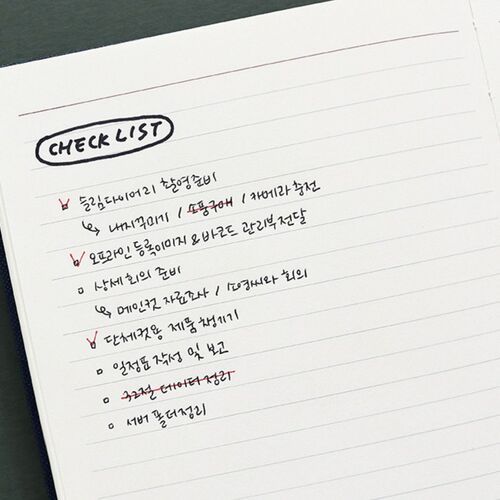 CHECK LIST
슬림다이어리 촬영준비
↳ 내지꾸미기 / 소품구매 / 카메라 충전
오프라인 등록이미지 & 바코드 관리부전달
상세 회의 준비
↳ 메인컷 자료조사 / 소영씨와 회의
단체컷용 제품 챙기기
일정표 작성 및 보고
32절 데이터 정리
서버 폴더정리